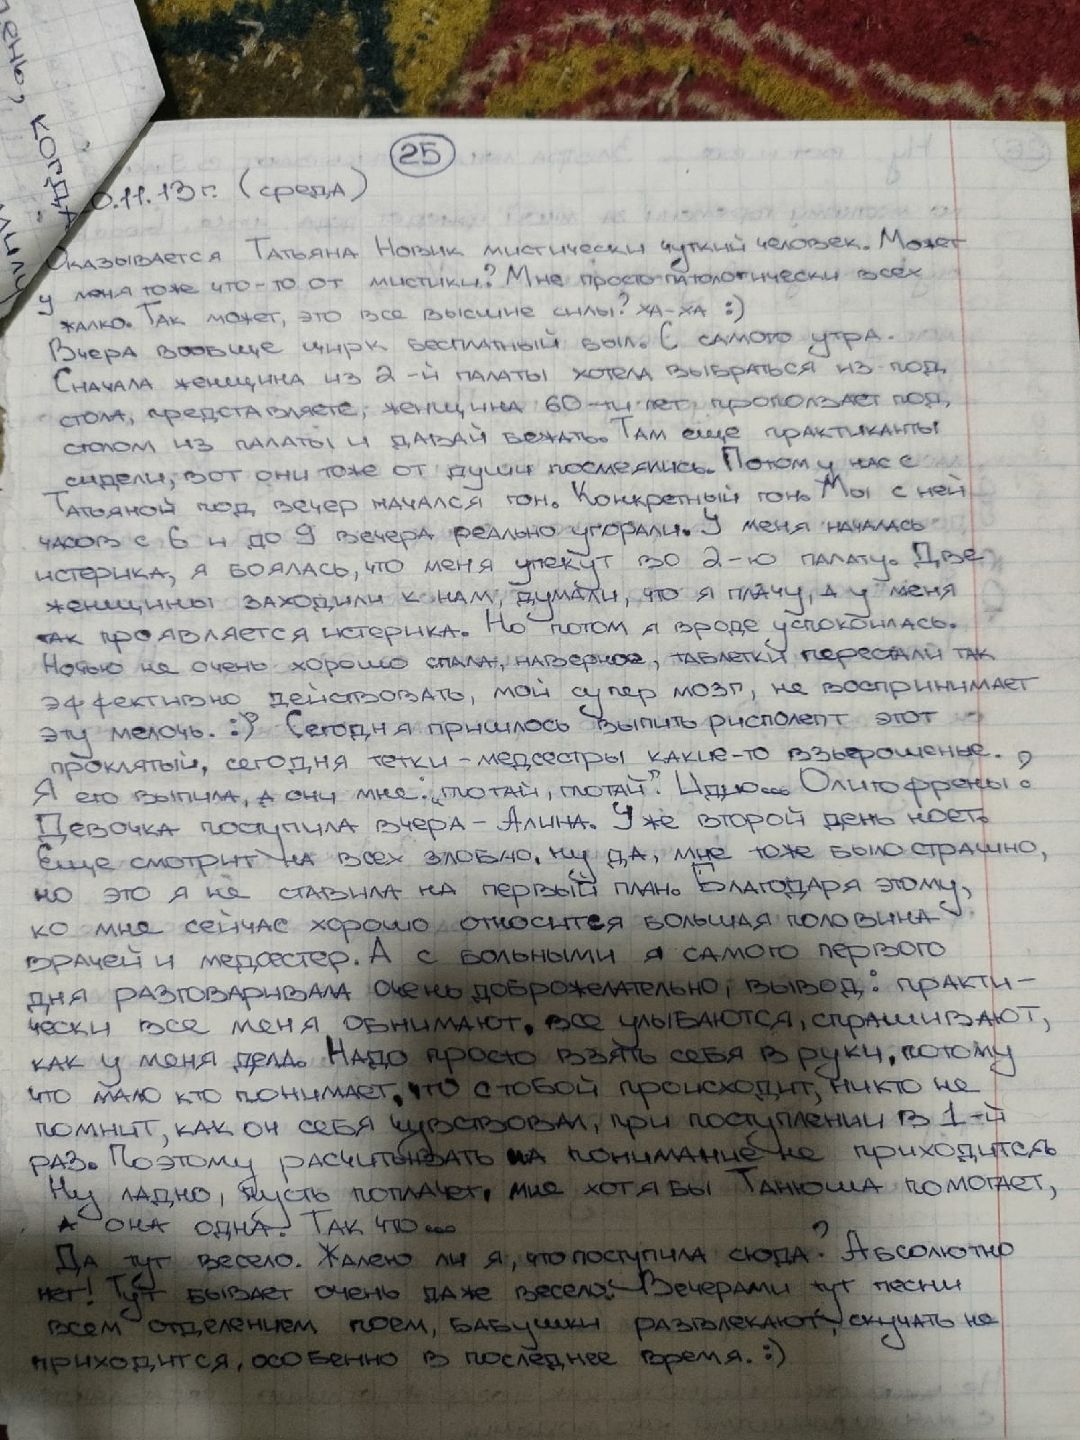 день, когда
25
0.11.13г. (среда)
Оказывается Татьяна Новик мистически чуткий человек. Может
у меня тоже что-то от мистики? Мне просто патологически всех
жалко. Так может, это все высшие силы? ха-ха :)
Вчера вообще цирк бесплатный был. С самого утра.
Сначала женщина из 2-й палаты хотела выбраться из под
стола, представляете, женщина 60-ти лет проползает под
столом из палаты и давай бежать. Там еще практиканты
сидели, вот они тоже от души посмеялись. Потом у нас с
Татьяной под вечер начался гон. Конкретный гон. Мы с ней
часов с 6 и до 9 вечера реально угорали. У меня началась
истерика, я боялась, что меня упекут во 2-ю палату. Две
женщины заходили к нам, думали, что я плачу, а у меня
так проявляется истерика. Но потом я вроде успокоилась.
Ночью не очень хорошо спала, наверное, таблетки перестали так
эффективно действовать, мой супер мозг, не воспринимает
эту мелочь. :) Сегодня пришлось выпить рисполепт этот
проклятый, сегодня тетки-медсестры какие-то взъерошенные.
Я его выпила, а они мне: "глотай, глотай". Идио... Олигофрены?
Девочка поступила вчера - Алина. Уже второй день ноет.
Еще смотрит на всех злобно. Ну да, мне тоже было страшно,
но это я не ставила на первый план. Благодаря этому,
ко мне сейчас хорошо относится большая половина
врачей и медсестер. А с больными я самого первого
дня разговаривала очень доброжелательно, вывод: практи-
чески все меня обнимают, все улыбаются, спрашивают,
как у меня дела. Надо просто взять себя в руки, потому
что мало кто понимает, что с тобой происходит, никто не
помнит, как он себя чувствовал, при поступлении в 1-й
раз. Поэтому расчитывать на понимание не приходится
Ну ладно, пусть поплачет, мне хотя бы Танюша помогает,
а она одна. Так что...
Да тут весело. Жалею ли я, что поступила сюда? Абсолютно
нет! Тут бывает очень даже весело. Вечерами тут песни
всем отделением поем, бабушки развлекают, скучать не
приходится, особенно в последнее время. :)